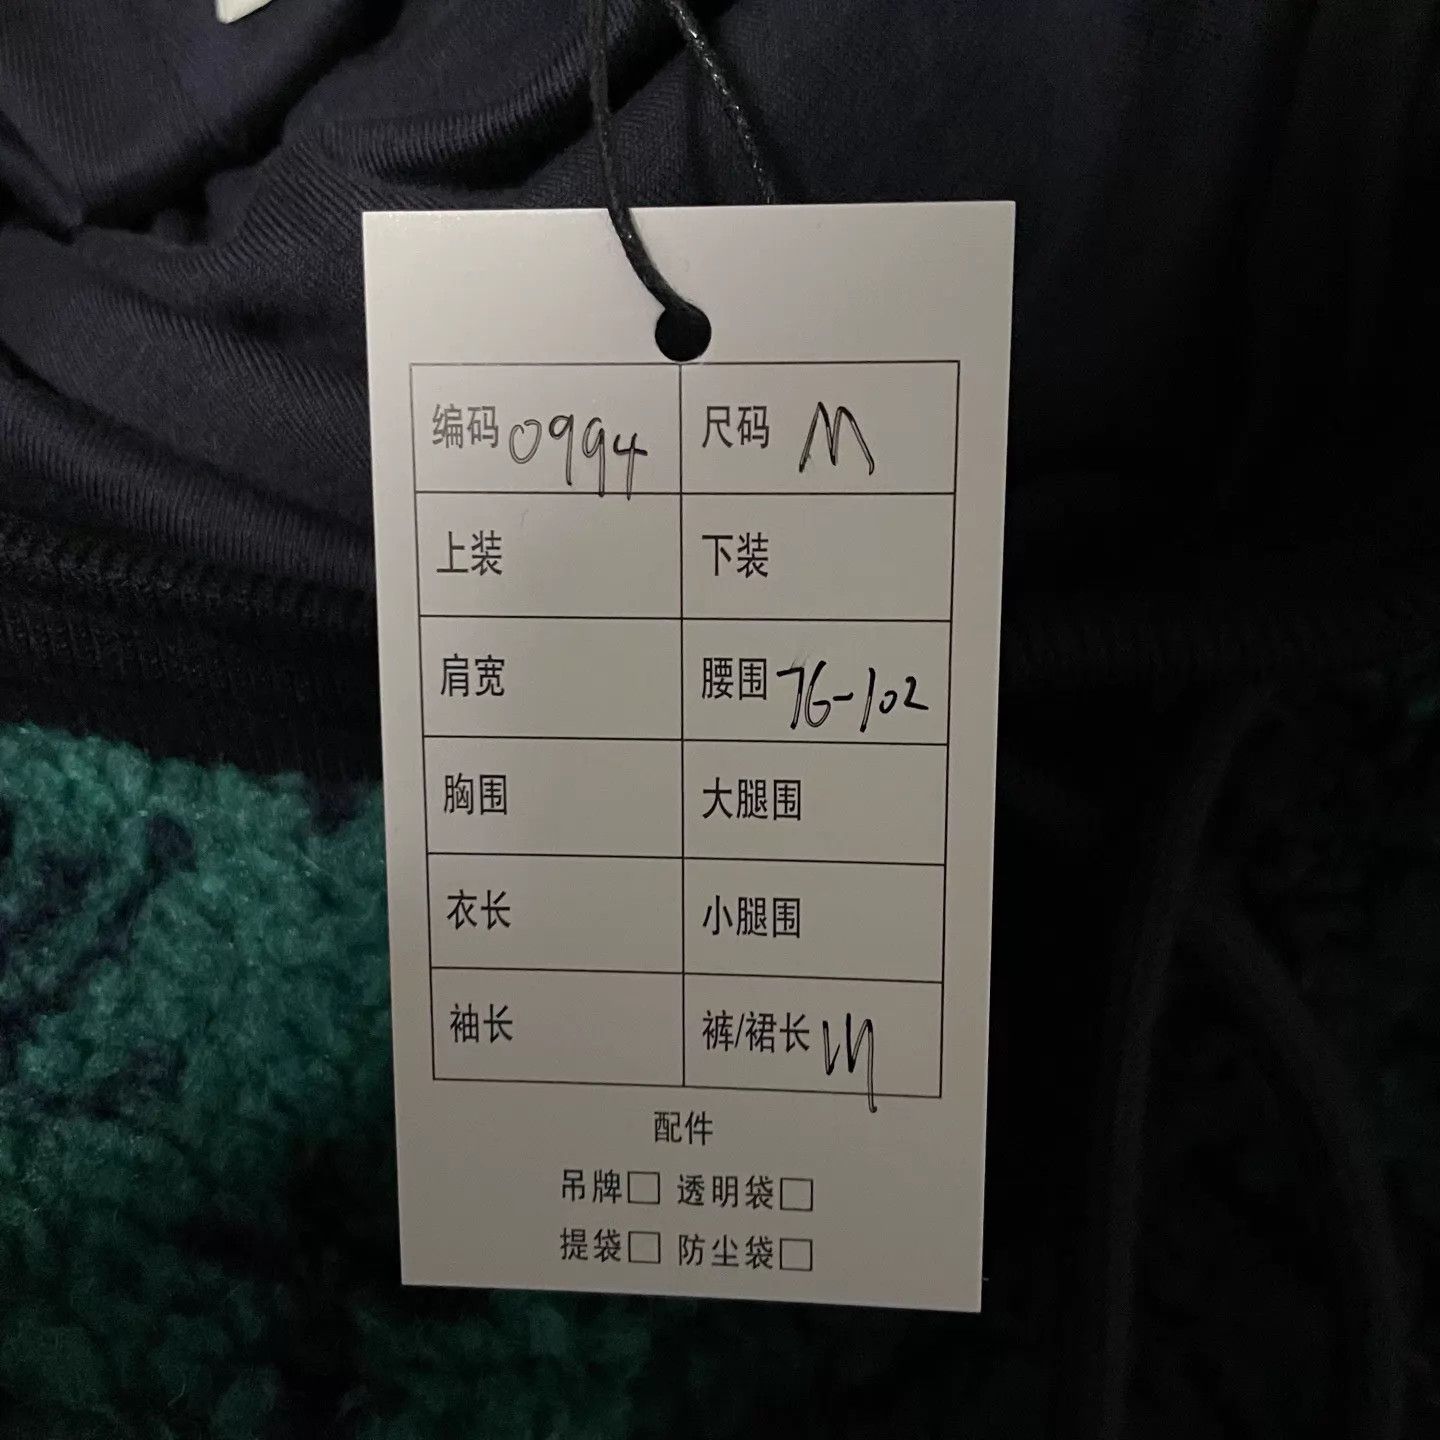 编码 0994 尺码 M
上装 下装
肩宽 腰围 76-102
胸围 大腿围
衣长 小腿围
袖长 裤/裙长
配件
吊牌□ 透明袋□
提袋□ 防尘袋□